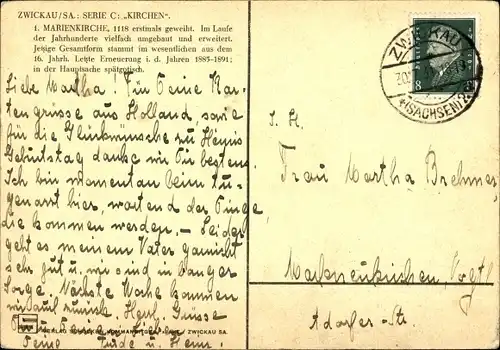 ZWICKAU/SA.: SERIE C: „KIRCHEN“.
1. MARIENKIRCHE, 1118 erstmals geweiht. Im Laufe
der Jahrhunderte vielfach umgebaut und erweitert.
Jetzige Gesamtform stammt im wesentlichen aus dem
16. Jahrh. Letzte Erneuerung i. d. Jahren 1885-1891;
in der Hauptsache spätgotisch.
Liebe Martha! Für Deine Kar-
tengrüsse aus Holland, sowie
für die Glückwünsche zu Heinis
Geburtstag danke wir Dir bestens
Ich bin momentan beim Au-
genarzt hier, wartend der Dinge,
die kommen werden. – Leider
geht es meinem Vater garnicht
sehr gut u. wir sind in banger
Sorge. Nächste Woche kommen
wir zurück. Herzl. Grüsse
Deine Trude u. Heini.
VERLAG ZWICKAU SA.
ZWICKAU
(SACHSEN)
8
Frau Martha Brehmer,
Markneukirchen, Vogtl
Adorfer-Str.